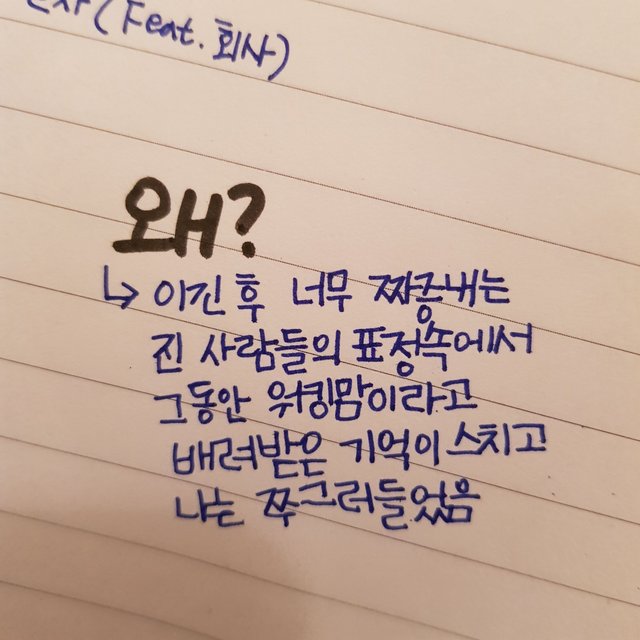 (Feat. 회사)
왜?
↳ 이긴 후 너무 짜증내는
진 사람들의 표정속에서
그동안 워킹맘이라고
배려받은 기억이 스치고
나는 쭈그러들었음